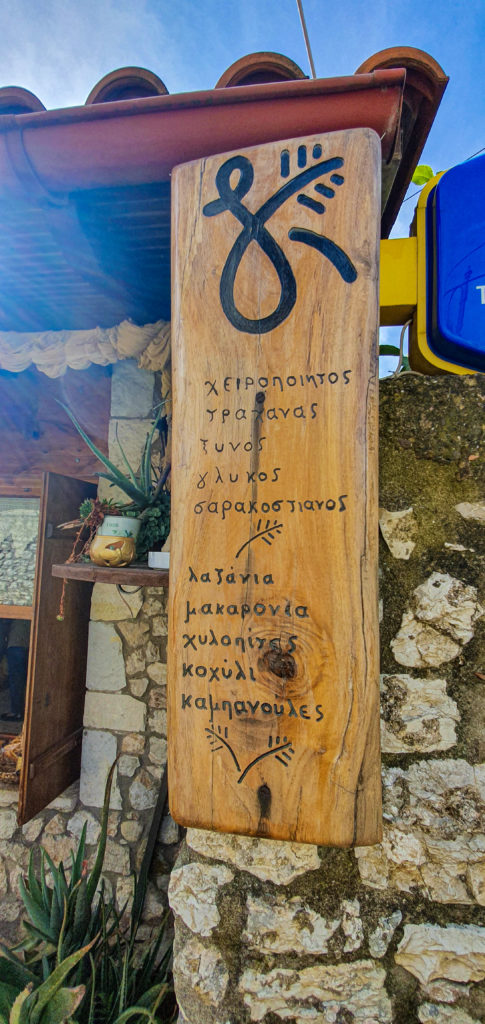 χειροποιητος
τραχανας
ξυνος
γλυκος
σαρακοστιανος
λαζάνια
μακαρόνια
χυλοπίτες
κοχύλι
καμπανούλες